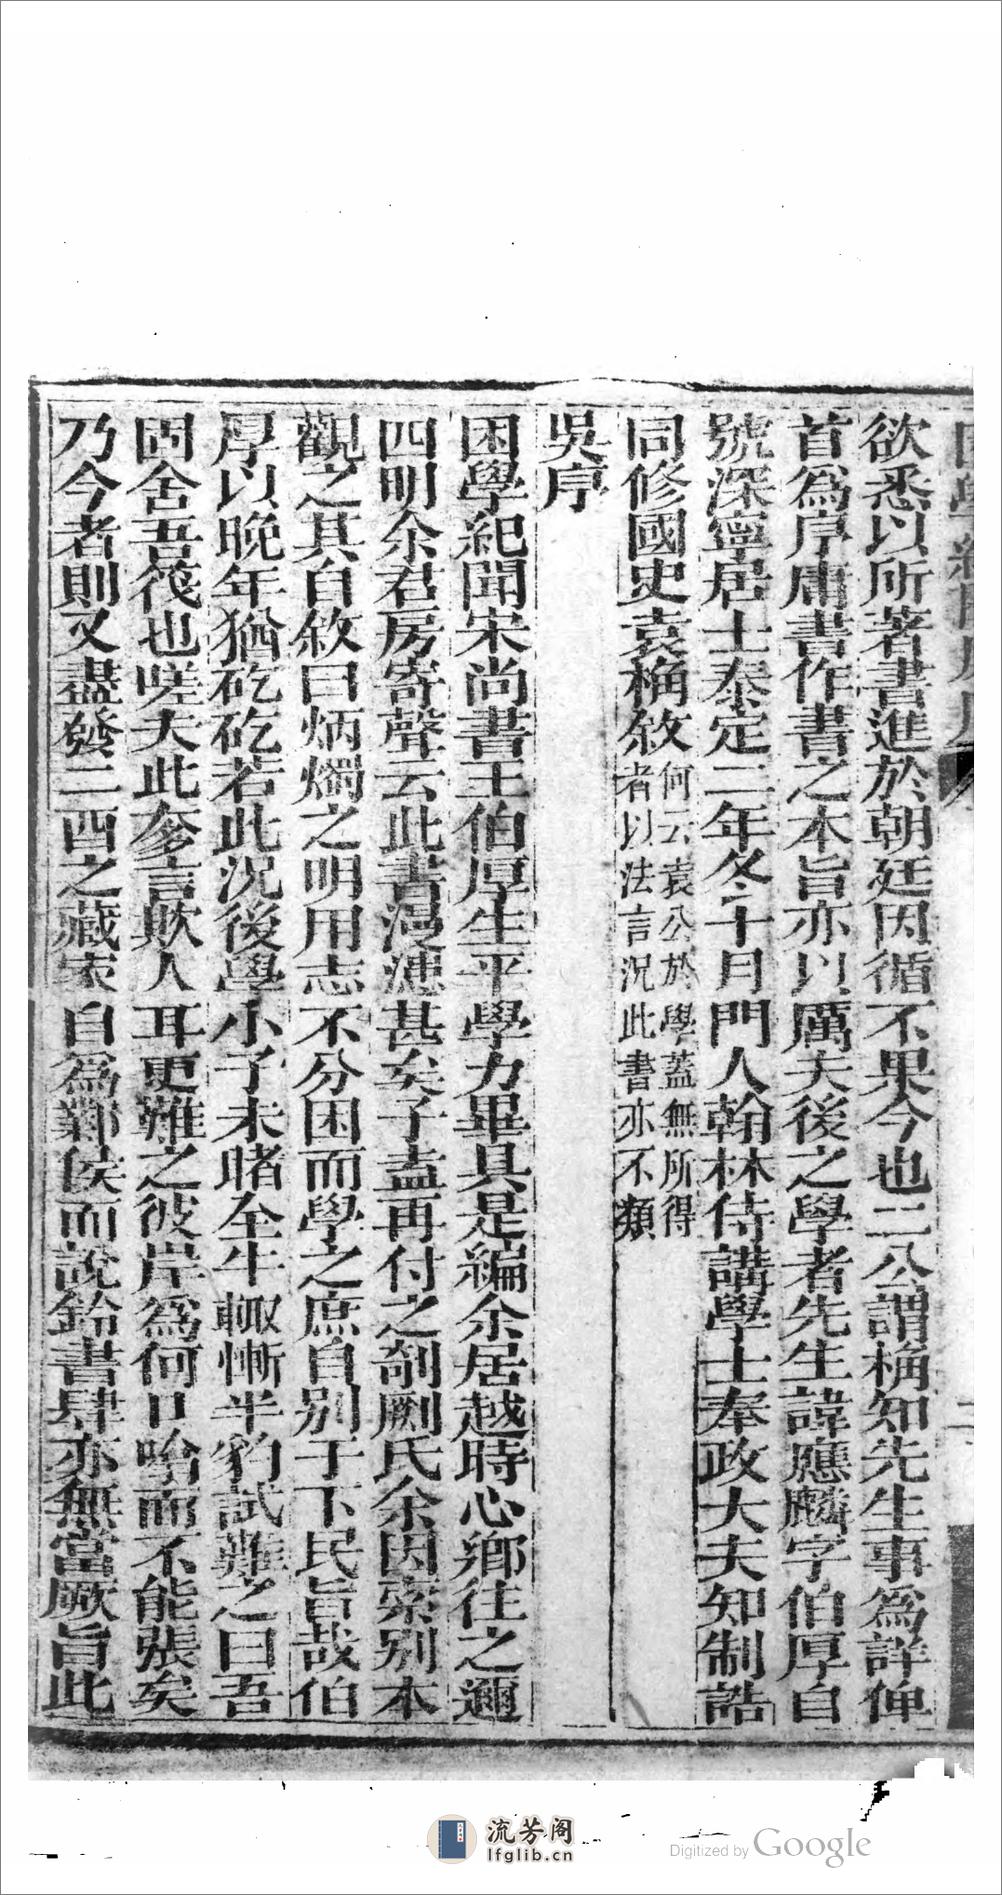 欲悉以所著書進於朝廷因循不果今也二公謂桷知先生事爲詳俾
首爲序庸書作書之本旨亦以厲夫後之學者先生諱應麟字伯厚自
號深寧居士泰定二年冬十月門人翰林侍講學士奉政大夫知制誥
同修國史袁桷敘何云袁公於學蓋無所得
者以法言況此書亦不類
吳序
困學紀聞宋尚書王伯厚生平學力畢具是編余居越時心鄉往之邇
四明余君房寄聲云此書漫漶甚矣子盍再付之剞劂氏余因索別本
觀之其自敘曰炳燭之明用志不分困而學之庶自別于下民旨哉伯
厚以晚年猶矻矻若此況後學小子未睹全牛輙慚半豹試難之曰吾
固舍吾筏也嗟夫此爹言欺人耳更難之彼岸爲何口哈而不能張矣
乃今者則又盡發二酉之藏家自爲鄴侯而說鈴書肆亦無當厥旨此
二
流芳阁
lfglib.cn
Digitized by Google